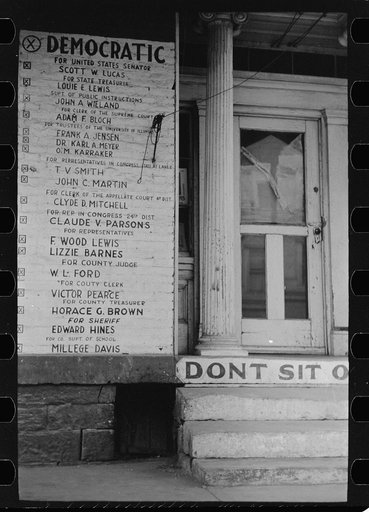 DEMOCRATIC
FOR UNITED STATES SENATOR
SCOTT W. LUCAS
FOR STATE TREASURER
LOUIE E. LEWIS
SUPT. OF PUBLIC INSTRUCTIONS
JOHN A WIELAND
FOR CLERK OF THE SUPREME COURT
ADAM F. BLOCH
FOR TRUSTEES OF THE UNIVERSITY OF ILLINOIS
FRANK A. JENSEN
DR. KARL A. MEYER
O.M. KARRAKER
FOR REPRESENTATIVES IN CONGRESS STATE AT LARGE
T. V. SMITH
JOHN C. MARTIN
FOR CLERK OF THE APPELLATE COURT 4th DIST.
CLYDE D. MITCHELL
FOR REP IN CONGRESS 24TH DIST.
CLAUDE V. PARSONS
FOR REPRESENTATIVES
F. WOOD LEWIS
LIZZIE BARNES
FOR COUNTY JUDGE
W. L. FORD
FOR COUNTY CLERK
VICTOR PEARCE
FOR COUNTY TREASURER
HORACE G. BROWN
FOR SHERIFF
EDWARD HINES
FOR CO. SUPT. OF SCHOOL
MILLEGE DAVIS
DONT SIT O